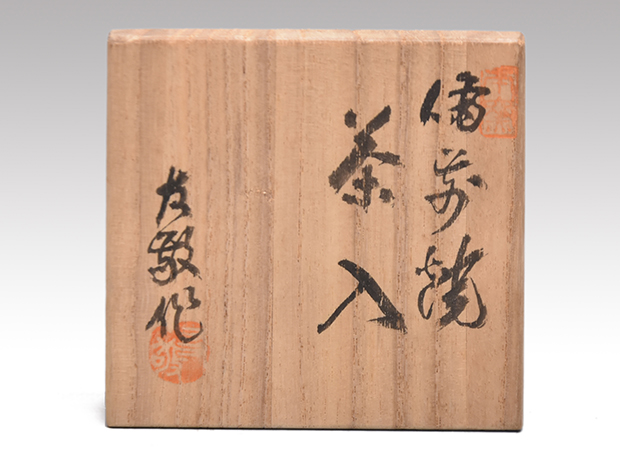 備前焼
茶入
友敬作